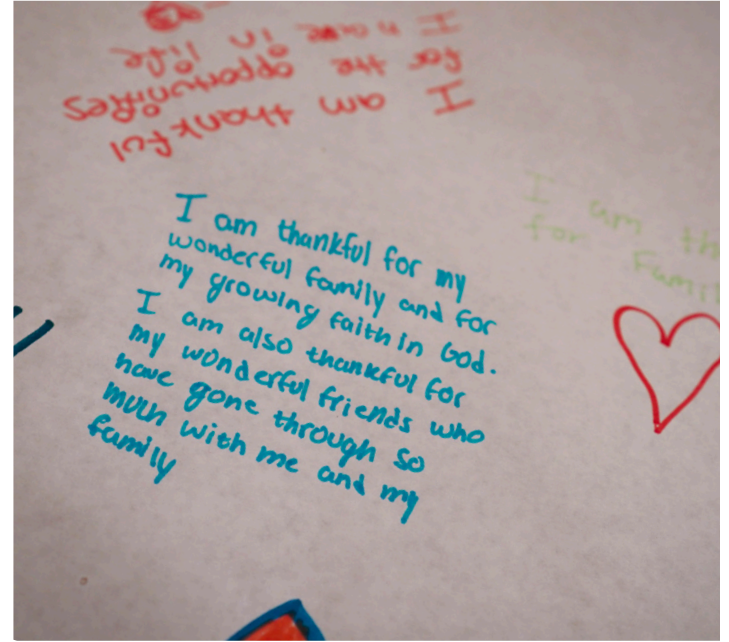 I am thankful
for the opportunities
I have in life
I am thankful for my
wonderful family and for
my growing faith in God.
I am also thankful for
my wonderful friends who
have gone through so
much with me and my
family
I am
for